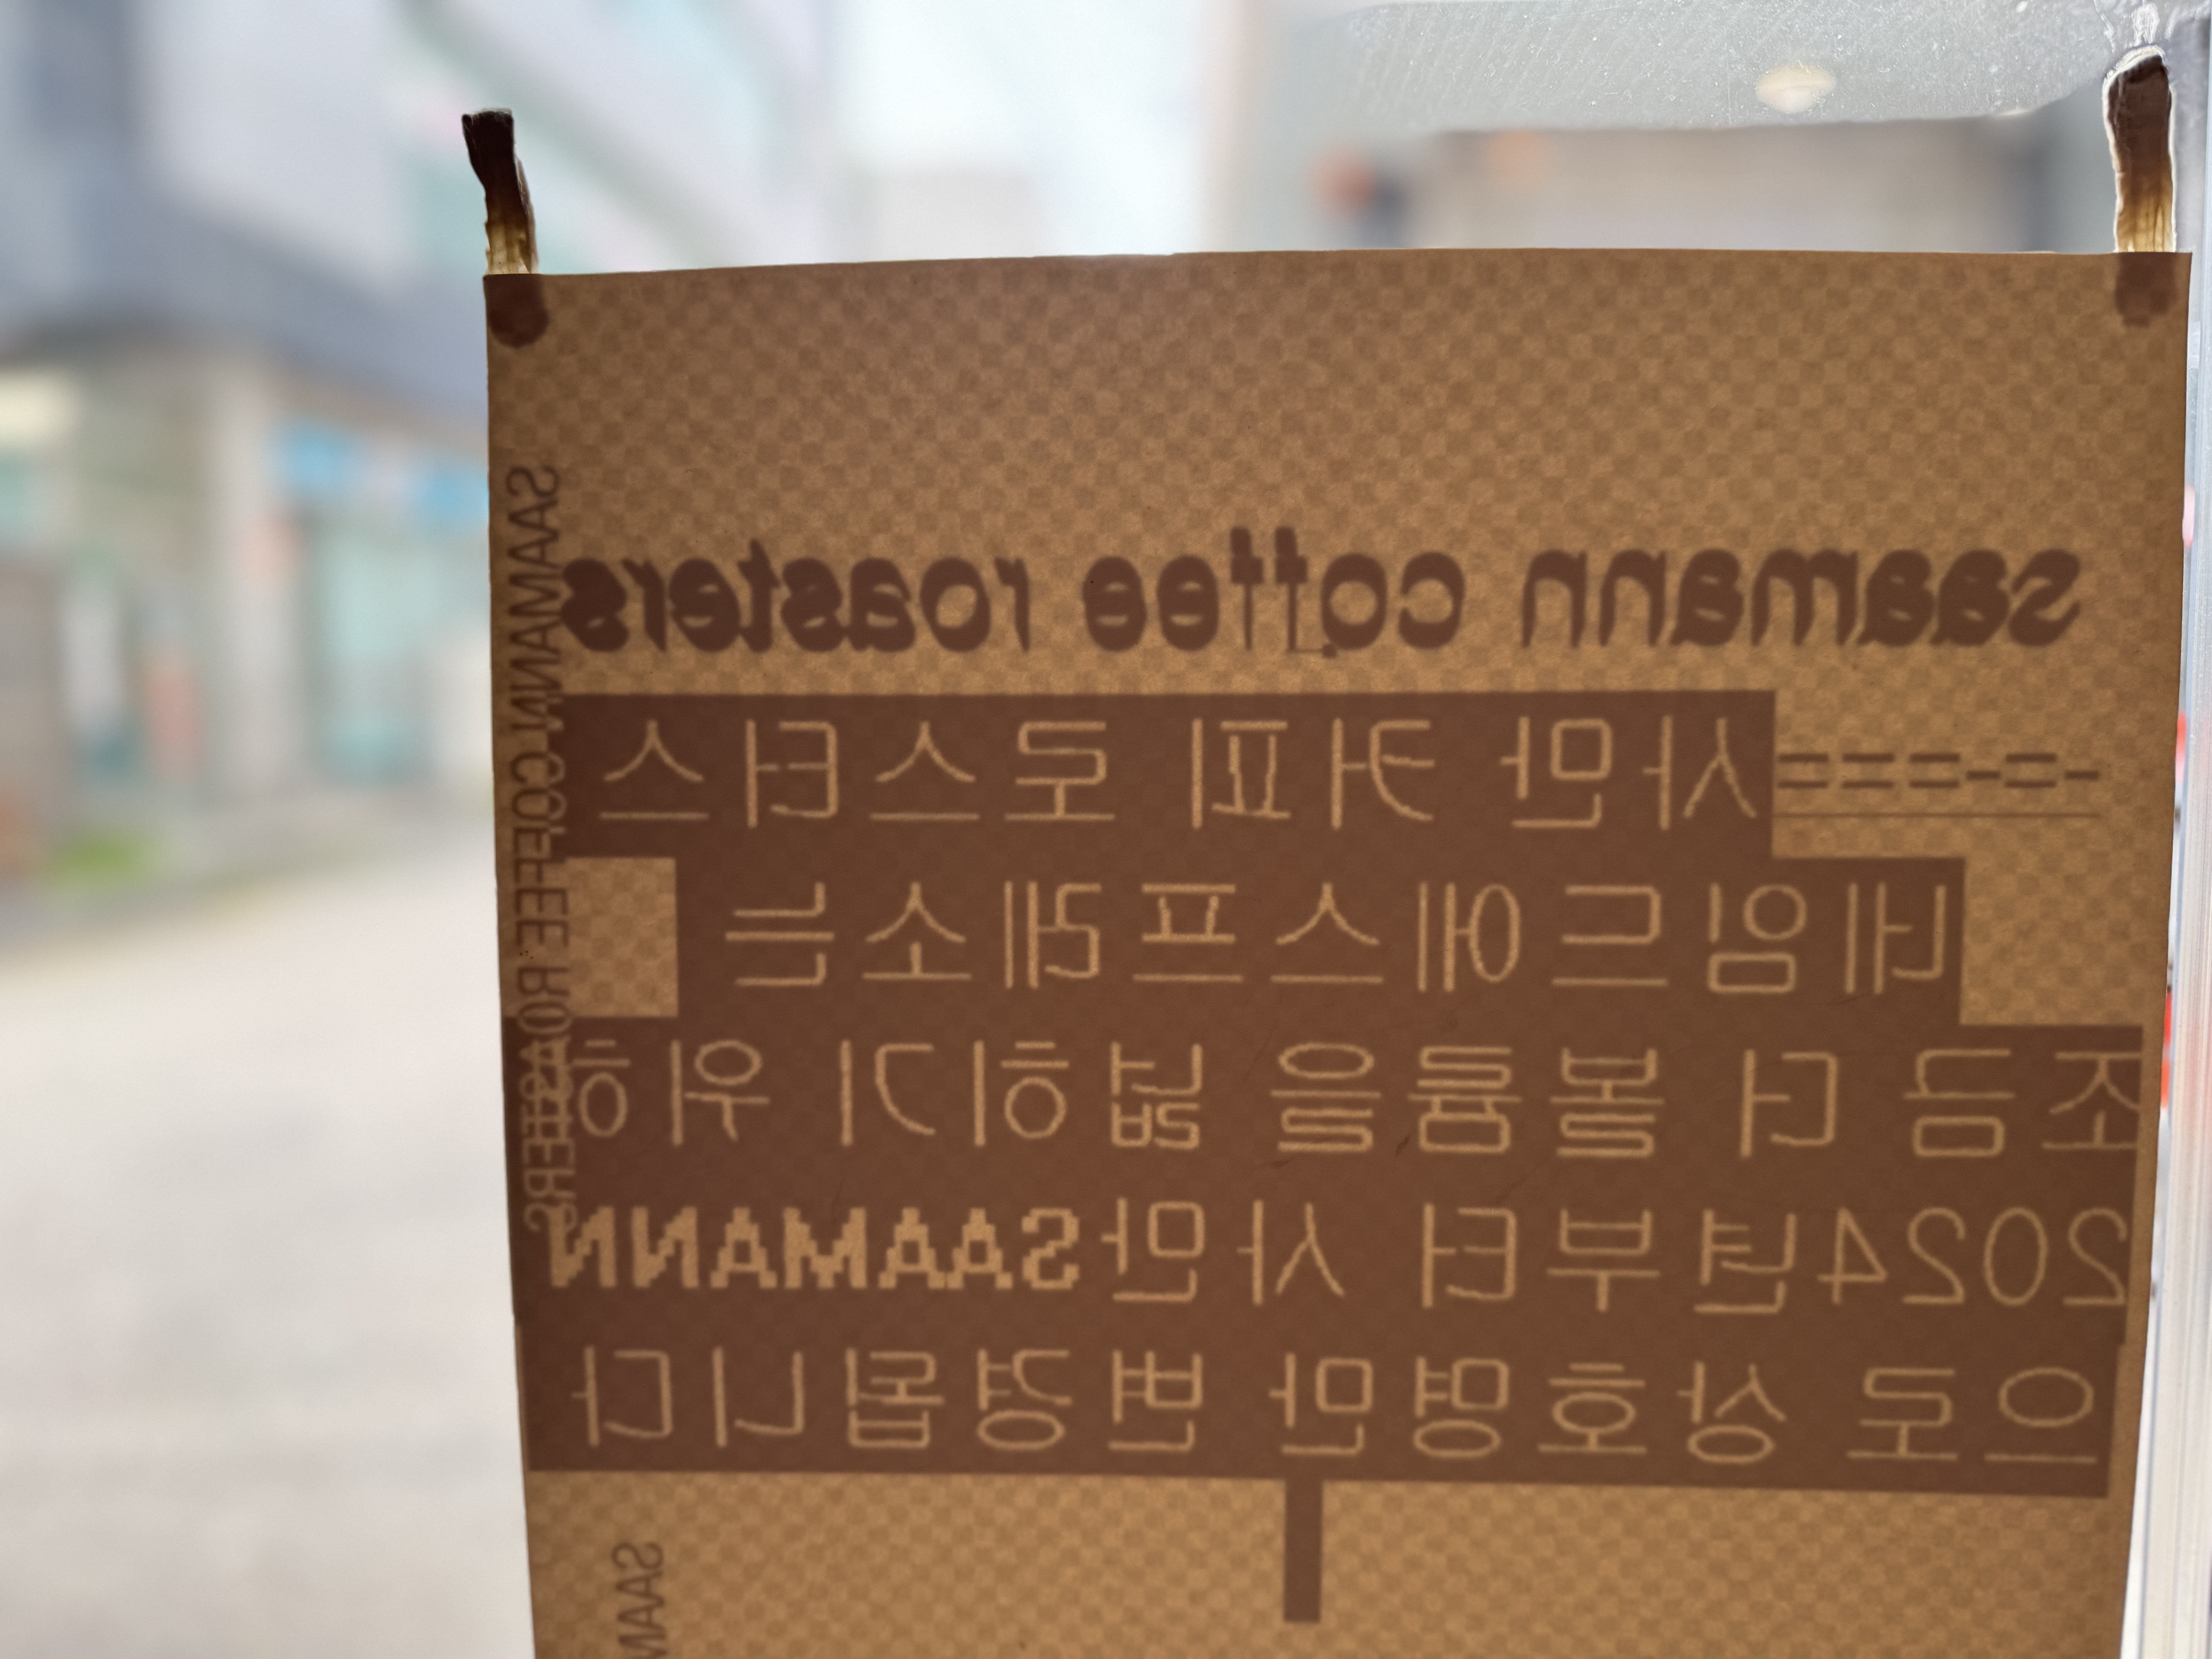 saamann coffee roasters
사만 커피 로스터스
네임드에스프레소는
조금 더 볼륨을 넓히기 위해
2024년부터 사만SAAMANN
으로 상호명만 변경됩니다
SAAMANN COFFEE ROASTERS
SAAM